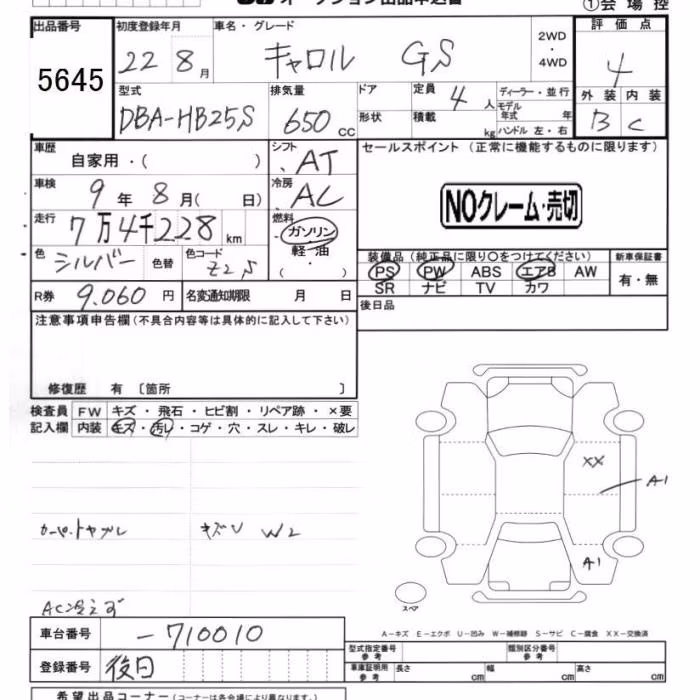 オークション出品申込書
①会場控
出品番号 5645
初度登録年月 22 8月
車名・グレード キャロル GS
2WD・4WD
評価点 4
外装 内装
B C
型式 DBA-HB25S
排気量 650 cc
ドア 形状
定員 4人
積載 kg
ディーラー・並行
モデル年式 年
ハンドル 左・右
車歴 自家用・( )
シフト AT
セールスポイント (正常に機能するものに限ります)
車検 9年 8月( 日)
冷房 AC
NOクレーム・売切
走行 7万4千228 km
燃料 ガソリン・軽油・( )
色 シルバー 色替
色コード Z2S
装備品 (純正品に限り○をつけてください)
PS PW ABS エアB AW
SR ナビ TV カワ
新車保証書 有・無
R券 9.060円
名変通知期限 月 日
後日品
注意事項申告欄 (不具合内容等は具体的に記入して下さい)
修復歴 有 〔箇所 〕
検査員記入欄
FW キズ・飛石・ヒビ割・リペア跡・×要
内装 キズ・汚レ・コゲ・穴・スレ・キレ・破レ
XX
A1
A1
キズU W2
AC冷えず
スペア
A-キズ E-エクボ U-凹み W-補修跡 S-サビ C-腐食 XX-交換済
車台番号 -710010
登録番号 後日
型式指定番号 参考
類別区分番号 参考
車庫証明用 参考 長さ cm 幅 cm 高さ cm
希望出品コーナー (コーナーは各会場により異なります。)